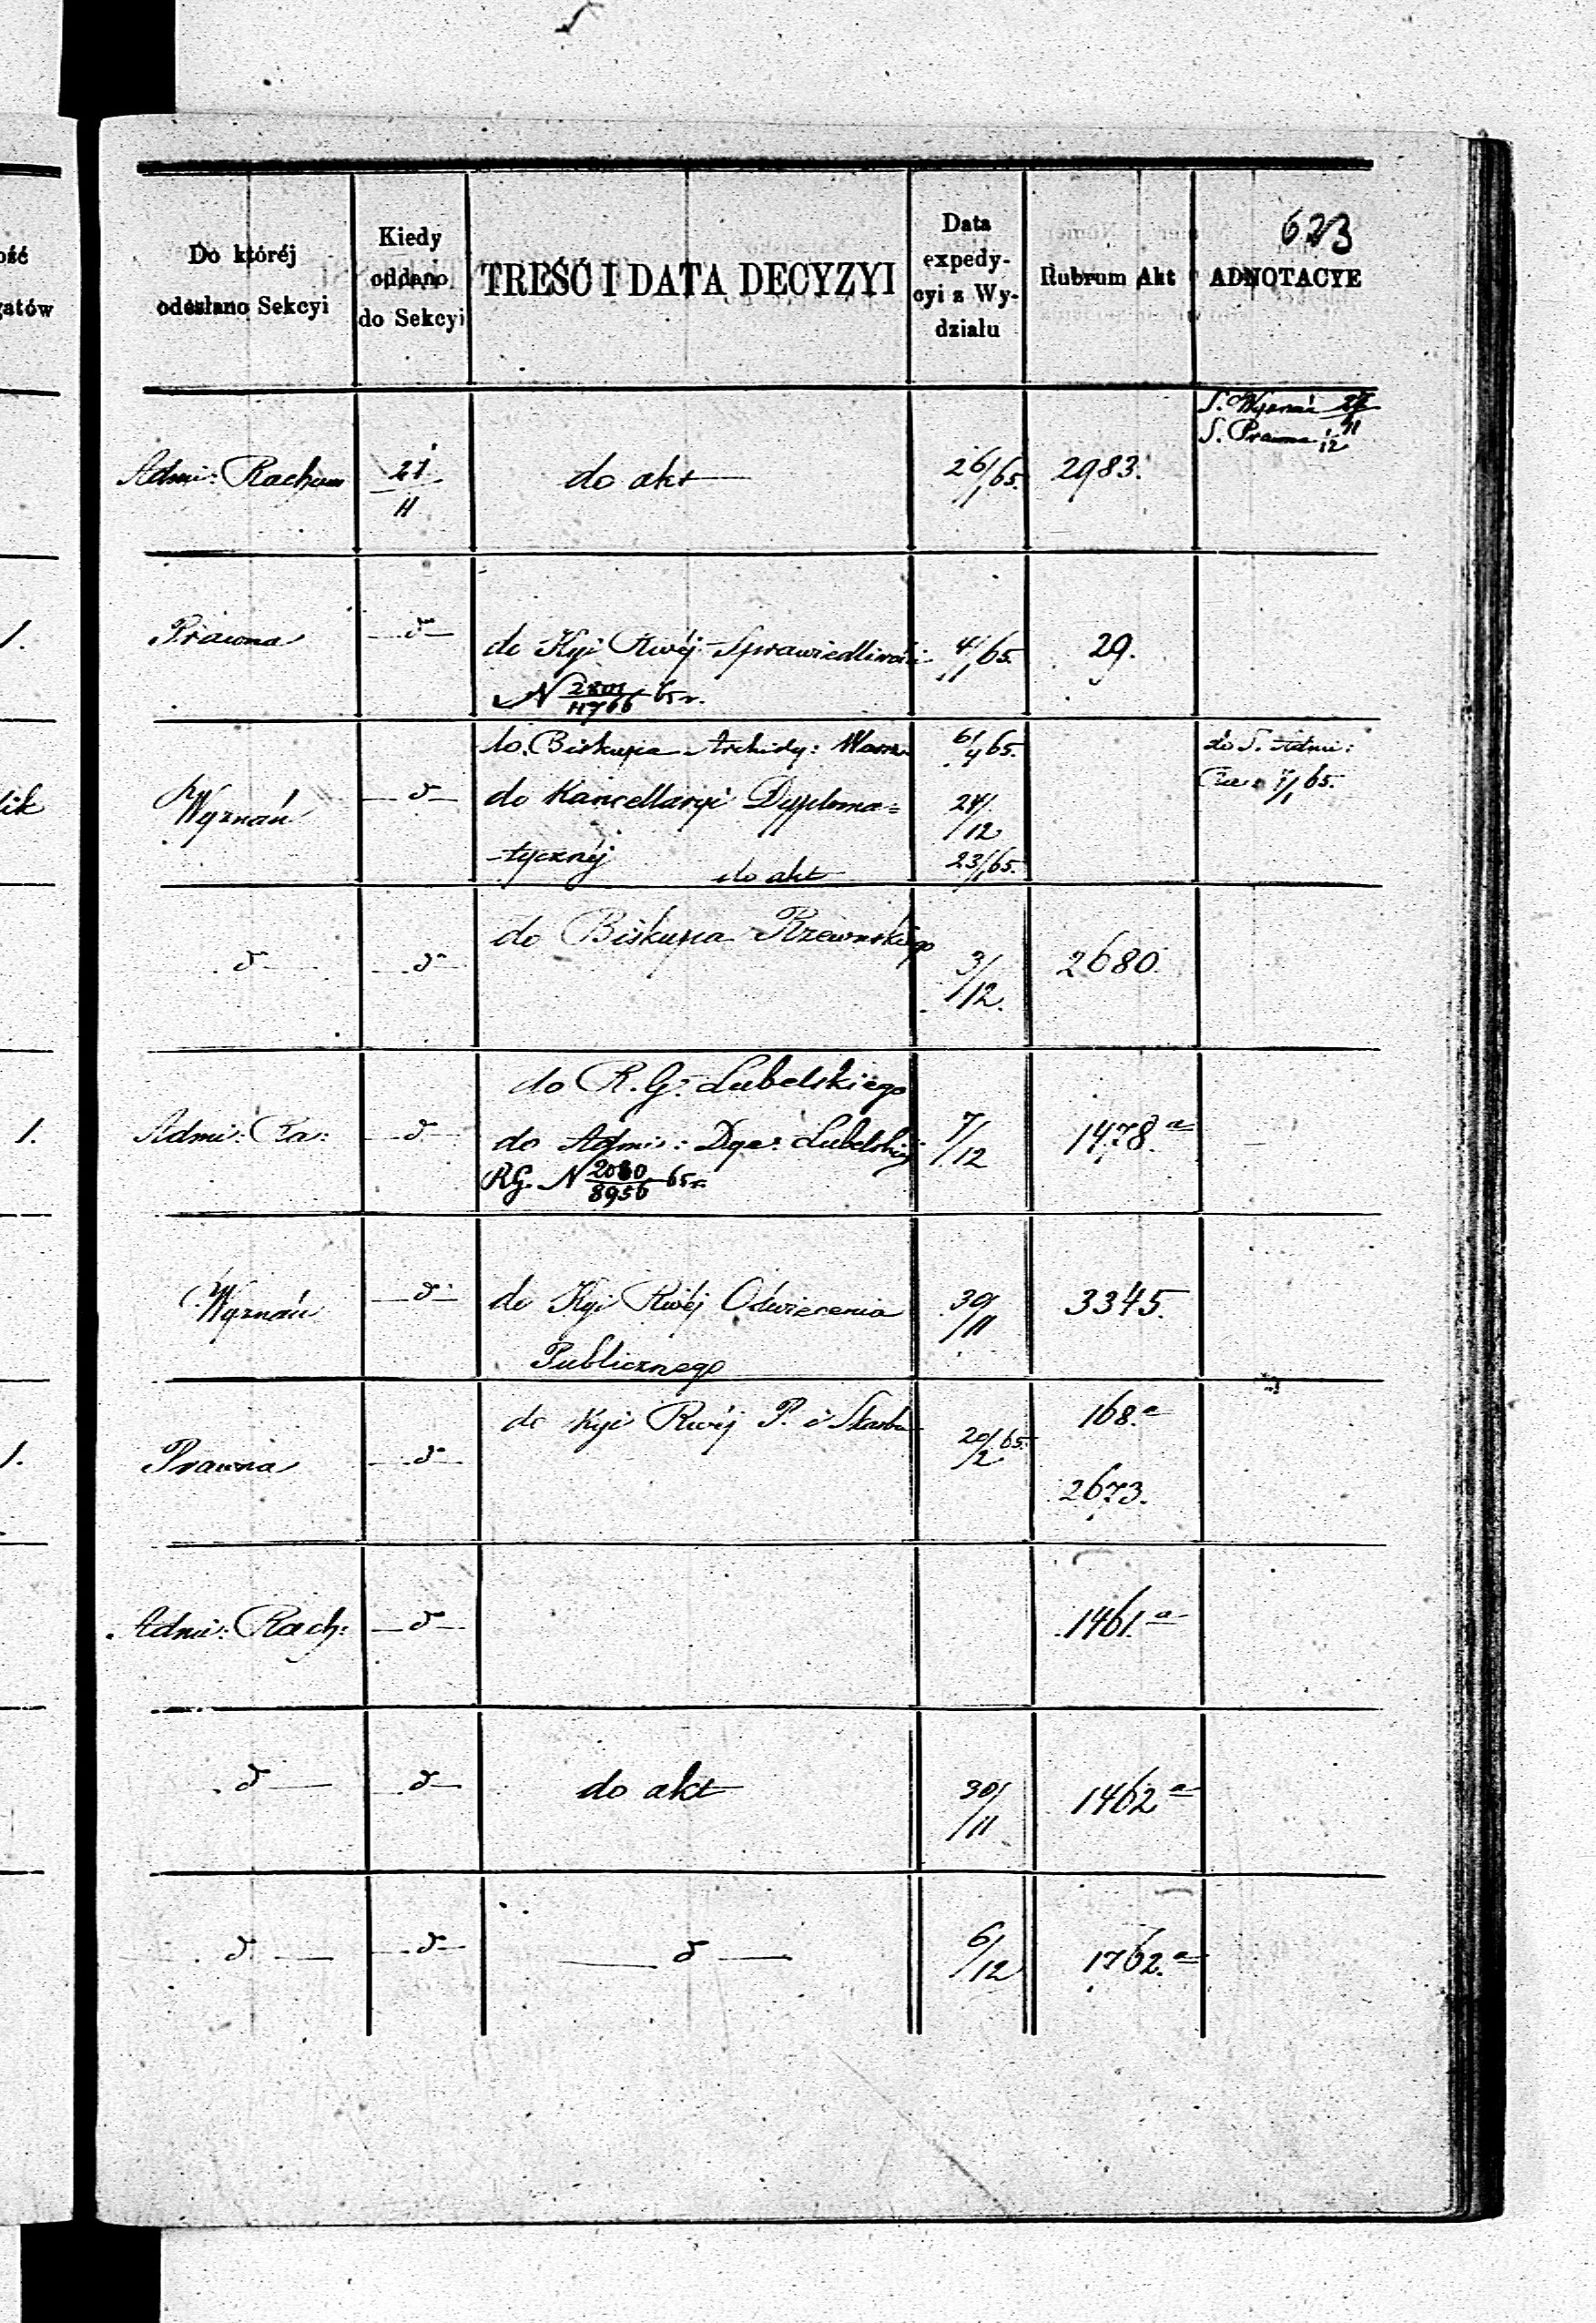 623
Do któréj
odesłano Sekcyi
Kiedy
oddano
do Sekcyi
TREŚĆ I DATA DECYZYI
Data
expedy-
cyi z Wy-
działu
Rubrum Akt
ADNOTACYE
S. Wyznań
S. Prawna 1/12
Admi: Rachun
21/11
do akt
26/1 65.
2983.
Prawna
d
do Kyi Rwéj Sprawiedliwości
4/1 65.
29.
N 2801/11766 65 r.
do Biskupa Archidy: Warsz
6/4 65.
do S. Admi:
Ra: 7/1 65.
Wyznań
d
do Kancellaryi Dyploma=
24/12
tycznéj
do akt
23/1 65.
d
d
do Biskupa Rzewuskiego
3/12.
2680.
do R. G. Lubelskiego
Admi: Ra:
d
do Admi: Dye: Lubelskiéj
7/12
1478.a
RG. N 2080/8956 65 r.
Wyznań
d
do Kyi Rwéj Oświecenia
30/11
3345.
Publicznego
do Kyi Rwéj P. i Skarbu
168.a
Prawna
d
20/2 65.
2673.
Admi: Rach:
d
1461.a
d
d
do akt
30/11
1462a
d
d
d
6/12
1762.a
ość
gatów
1.
lik
1.
1.